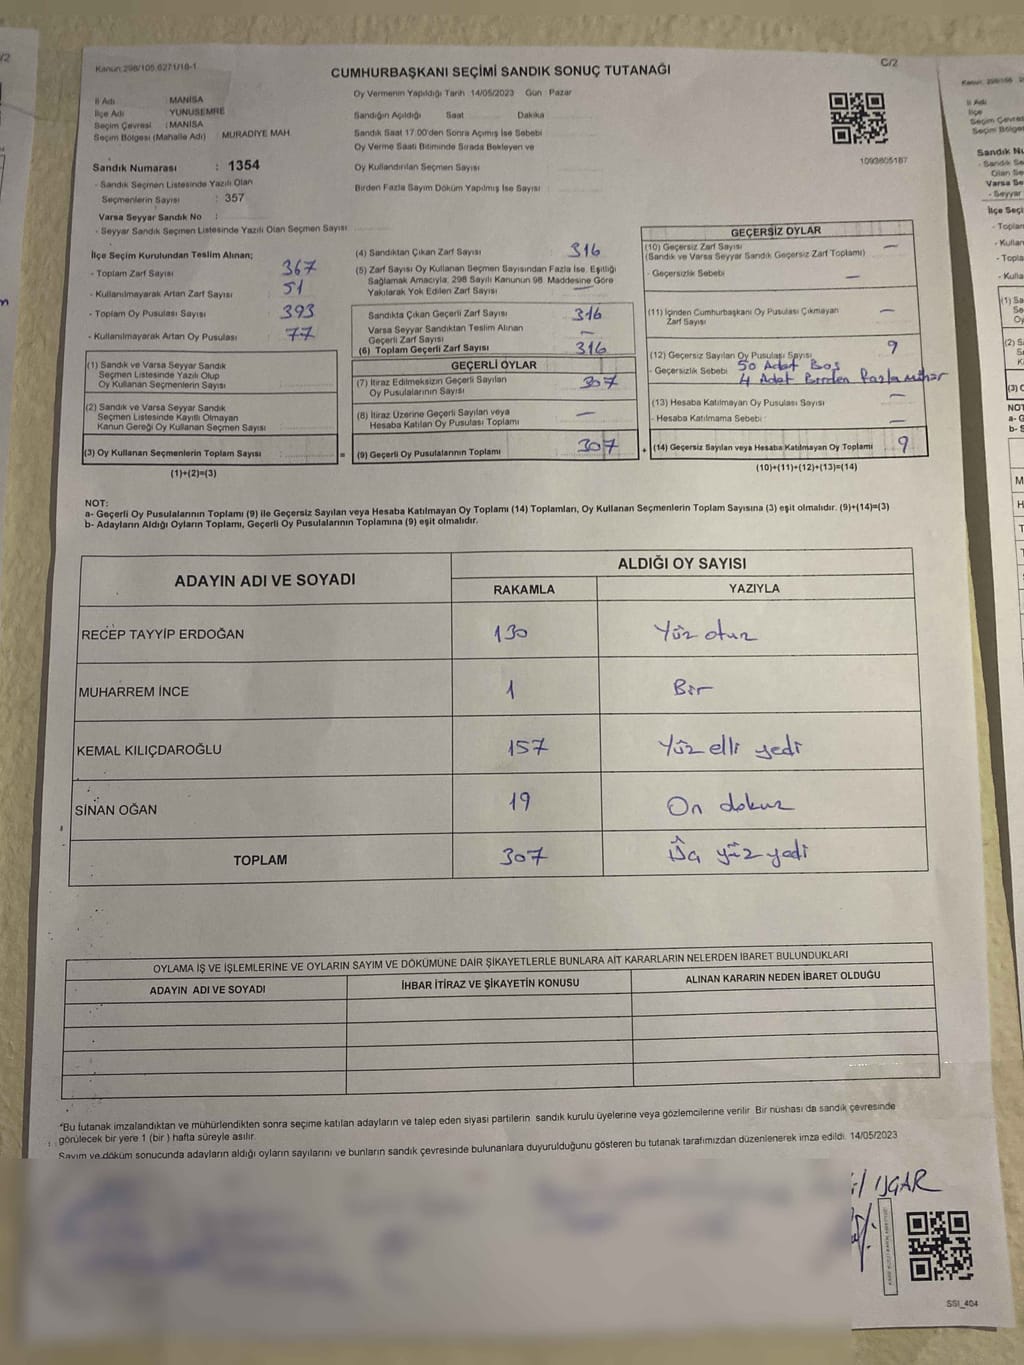 Kanun:298/105.6271/18-1
C/2
CUMHURBAŞKANI SEÇİMİ SANDIK SONUÇ TUTANAĞI
İl Adı MANİSA
İlçe Adı YUNUSEMRE
Seçim Çevresi : MANİSA
Seçim Bölgesi (Mahalle Adı) : MURADİYE MAH.
Sandık Numarası : 1354
- Sandık Seçmen Listesinde Yazılı Olan
Seçmenlerin Sayısı : 357
Varsa Seyyar Sandık No :
- Seyyar Sandık Seçmen Listesinde Yazılı Olan Seçmen Sayısı
Oy Vermenin Yapıldığı Tarih 14/05/2023 Gün : Pazar
Sandığın Açıldığı Saat Dakika
Sandık Saat 17:00'den Sonra Açımış İse Sebebi
Oy Verme Saati Bitiminde Sırada Bekleyen ve
Oy Kullandırılan Seçmen Sayısı
Birden Fazla Sayım Döküm Yapılmış İse Sayısı :
1093605187
İlçe Seçim Kurulundan Teslim Alınan;
- Toplam Zarf Sayısı 367
- Kullanılmayarak Artan Zarf Sayısı 51
- Toplam Oy Pusulası Sayısı 393
- Kullanılmayarak Artan Oy Pusulası 77
(1) Sandık ve Varsa Seyyar Sandık
Seçmen Listesinde Yazılı Olup
Oy Kullanan Seçmenlerin Sayısı
(2) Sandık ve Varsa Seyyar Sandık
Seçmen Listesinde Kayıtlı Olmayan
Kanun Gereği Oy Kullanan Seçmen Sayısı
(3) Oy Kullanan Seçmenlerin Toplam Sayısı =
(1)+(2)=(3)
(4) Sandıktan Çıkan Zarf Sayısı 316
(5) Zarf Sayısı Oy Kullanan Seçmen Sayısından Fazla İse. Eşitliği
Sağlamak Amacıyla, 298 Sayılı Kanunun 98. Maddesine Göre
Yakılarak Yok Edilen Zarf Sayısı —
Sandıkta Çıkan Geçerli Zarf Sayısı 316
Varsa Seyyar Sandıktan Teslim Alınan
Geçerli Zarf Sayısı —
(6) Toplam Geçerli Zarf Sayısı 316
GEÇERLİ OYLAR
(7) İtiraz Edilmeksizin Geçerli Sayılan
Oy Pusulalarının Sayısı 307
(8) İtiraz Üzerine Geçerli Sayılan veya
Hesaba Katılan Oy Pusulası Toplamı —
(9) Geçerli Oy Pusulalarının Toplamı 307 +
GEÇERSİZ OYLAR
(10) Geçersiz Zarf Sayısı —
(Sandık ve Varsa Seyyar Sandık Geçersiz Zarf Toplamı)
- Geçersizlik Sebebi —
(11) İçinden Cumhurbaşkanı Oy Pusulası Çıkmayan
Zarf Sayısı —
(12) Geçersiz Sayılan Oy Pusulası Sayısı 9
- Geçersizlik Sebebi 50 Adet Boş
4 Adet Birden Fazla mühür
(13) Hesaba Katılmayan Oy Pusulası Sayısı —
- Hesaba Katılmama Sebebi —
(14) Geçersiz Sayılan veya Hesaba Katılmayan Oy Toplamı 9
(10)+(11)+(12)+(13)=(14)
NOT:
a- Geçerli Oy Pusulalarının Toplamı (9) ile Geçersiz Sayılan veya Hesaba Katılmayan Oy Toplamı (14) Toplamları, Oy Kullanan Seçmenlerin Toplam Sayısına (3) eşit olmalıdır. (9)+(14)=(3)
b- Adayların Aldığı Oyların Toplamı, Geçerli Oy Pusulalarının Toplamına (9) eşit olmalıdır.
ADAYIN ADI VE SOYADI
ALDIĞI OY SAYISI
RAKAMLA YAZIYLA
RECEP TAYYİP ERDOĞAN 130 Yüz otuz
MUHARREM İNCE 1 Bir
KEMAL KILIÇDAROĞLU 157 Yüz elli yedi
SİNAN OĞAN 19 On dokuz
TOPLAM 307 Üç yüz yedi
OYLAMA İŞ VE İŞLEMLERİNE VE OYLARIN SAYIM VE DÖKÜMÜNE DAİR ŞİKAYETLERLE BUNLARA AİT KARARLARIN NELERDEN İBARET BULUNDUKLARI
ADAYIN ADI VE SOYADI İHBAR İTİRAZ VE ŞİKAYETİN KONUSU ALINAN KARARIN NEDEN İBARET OLDUĞU
*Bu tutanak imzalandıktan ve mühürlendikten sonra seçime katılan adayların ve talep eden siyasi partilerin sandık kurulu üyelerine veya gözlemcilerine verilir. Bir nüshası da sandık çevresinde
görülecek bir yere 1 (bir ) hafta süreyle asılır.
Sayım ve döküm sonucunda adayların aldığı oyların sayılarını ve bunların sandık çevresinde bulunanlara duyurulduğunu gösteren bu tutanak tarafımızdan düzenlenerek imza edildi. 14/05/2023
SSI_404